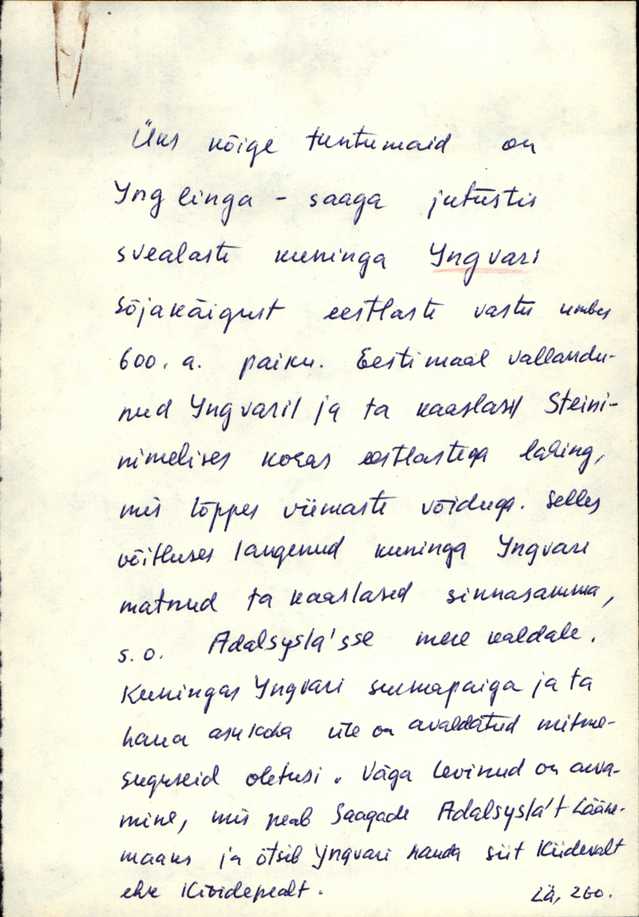 Üks kõige tuntumaid on
Ynglinga - saaga jutustis
svealaste kuninga Yngvari
sõjakäigust eestlaste vastu umbes
600. a. paiku. Eestimaal vallandu-
nud Yngvaril ja ta kaaslasil Steini-
nimelises kohas eestlastega lahing,
mis lõppes viimaste võiduga. Selles
võitluses langenud kuninga Yngvari
matnud ta kaaslased sinnasamma,
s.o. Adalsysla'sse mere kaldale.
Kuningas Yngvari surmapaiga ja ta
haua asukoha üle on avaldatud mitme-
suguseid oletusi. Väga levinud on arva-
mine, mis peab Saagade Adalsysla't Lääne-
maaks ja otsib Yngvari hauda siit Kiidevalt
ehk Kividepealt.
Lä, 260.